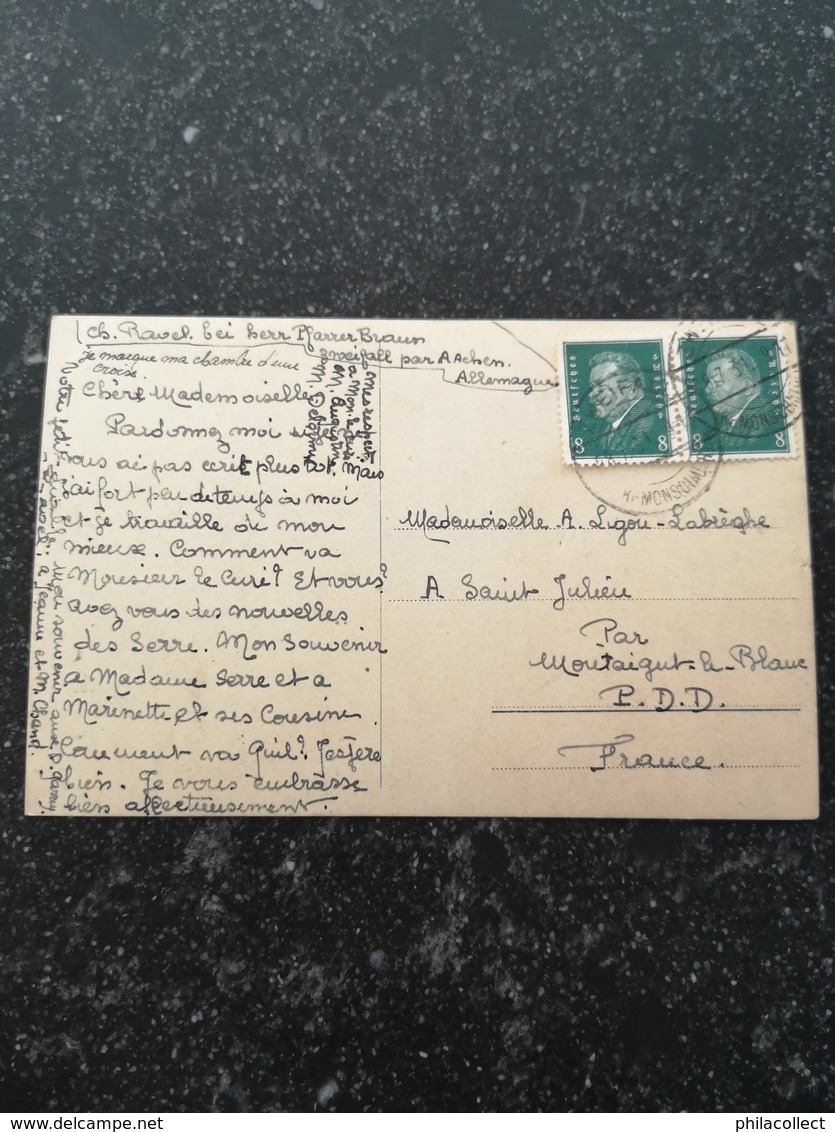 Ch. Ravel. bei herr Pfarrer Braun
Zweifall par Aachen.
Allemagne
Je marque ma chambre d'une
croix.
Chère Mademoiselle
Pardonnez moi si je
vous ai pas ecrit plus tot. Mais
j'ai fort peu de temps à moi
et je travaille de mon
mieux. Comment va
Monsieur le Curé? Et vous?
avez vous des nouvelles
des Serre. Mon Souvenir
a Madame Serre et a
Marinette et ses Cousine
Comment va Guil? J'espère
bien. Je vous embrasse
bien affectueusement.
mes respects
a Mon. le Curé
M.
M.
Votre
mon souvenir aux D.
a Jeanne et M. Chand.
Deutsches Reich
8 8
Deutsches Reich
8 8
Mademoiselle A. Ligou-Labrèghe
A Saint Julien
Par
Montaigut-le-Blanc
P.D.D.
France.
delcampe.net
philacollect